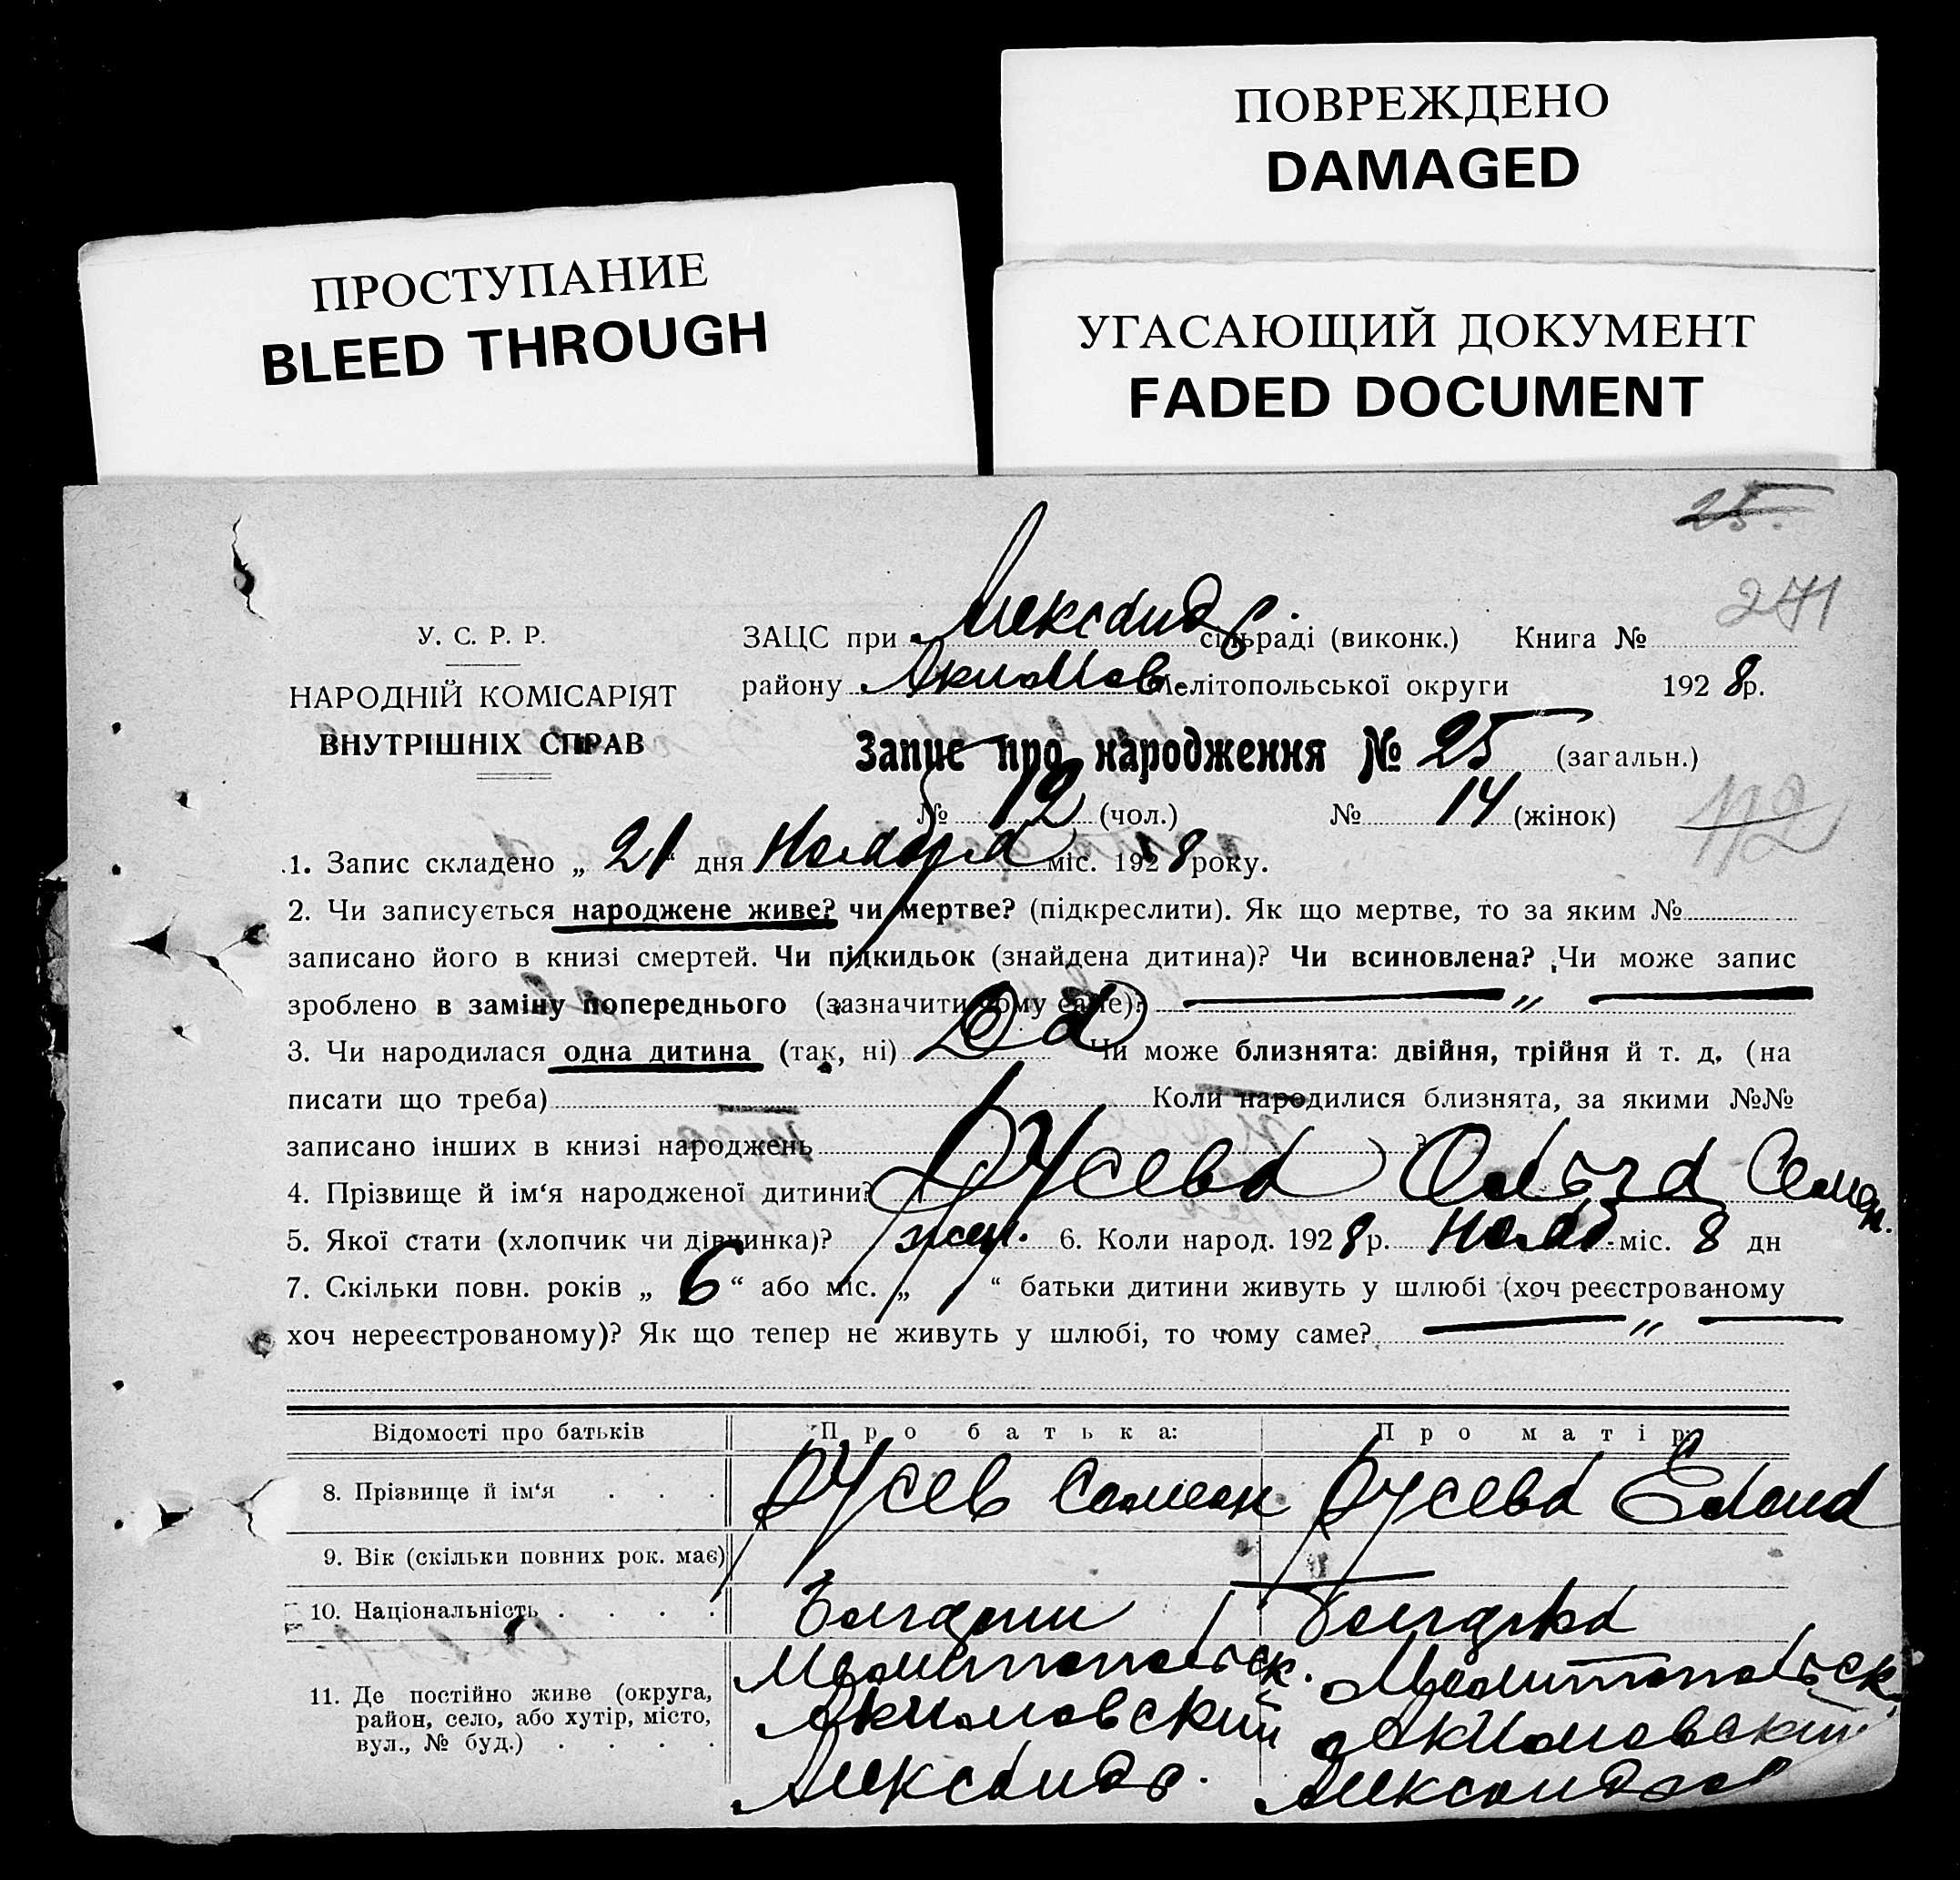 ПОВРЕЖДЕНО
DAMAGED
ПРОСТУПАНИЕ
BLEED THROUGH
УГАСАЮЩИЙ ДОКУМЕНТ
FADED DOCUMENT
25.
271
У. С. Р. Р.
НАРОДНІЙ КОМІСАРІЯТ
ВНУТРІШНІХ СПРАВ
ЗАЦС при Александр. сільраді (виконк.) Книга №
району Акимов. Мелітопольської округи 1928р.
Запис про народження № 25 (загальн.)
№ 12 (чол.) № 14 (жінок)
112
1. Запис складено „ 21 “ дня Ноября міс. 1928 року.
2. Чи записується народжене живе? чи мертве? (підкреслити). Як що мертве, то за яким №
записано його в книзі смертей. Чи підкидьок (знайдена дитина)? Чи всиновлена? Чи може запис
зроблено в заміну попереднього (зазначити чому саме)? — „ —
3. Чи народилася одна дитина (так, ні) Чи може близнята: двійня, трійня й т. д. (на
писати що треба) Коли народилися близнята, за якими №№
записано інших в книзі народжень ?
4. Прізвище й ім‘я народженої дитини? Русева Ольга Семен.
5. Якої стати (хлопчик чи дівчинка)? жен. 6. Коли народ. 1928р. Нояб. міс. 8 дн
7. Скільки повн. років „ 6 “ або міс. „ “ батьки дитини живуть у шлюбі (хоч реєстрованому
хоч нереєстрованому)? Як що тепер не живуть у шлюбі, то чому саме? — „ —
Відомості про батьків Про батька: Про матір:
8. Прізвище й ім‘я . . . Русев Семен Русева Елена
9. Вік (скільки повних рок. має)
10. Національність . . . . Болгарин Болгарка
11. Де постійно живе (округа, район, село, або хутір, місто, вул., № буд.) . . . .
Мелитопольск. Мелитопольск.
Акимовский Акимовский
Александр. Александров